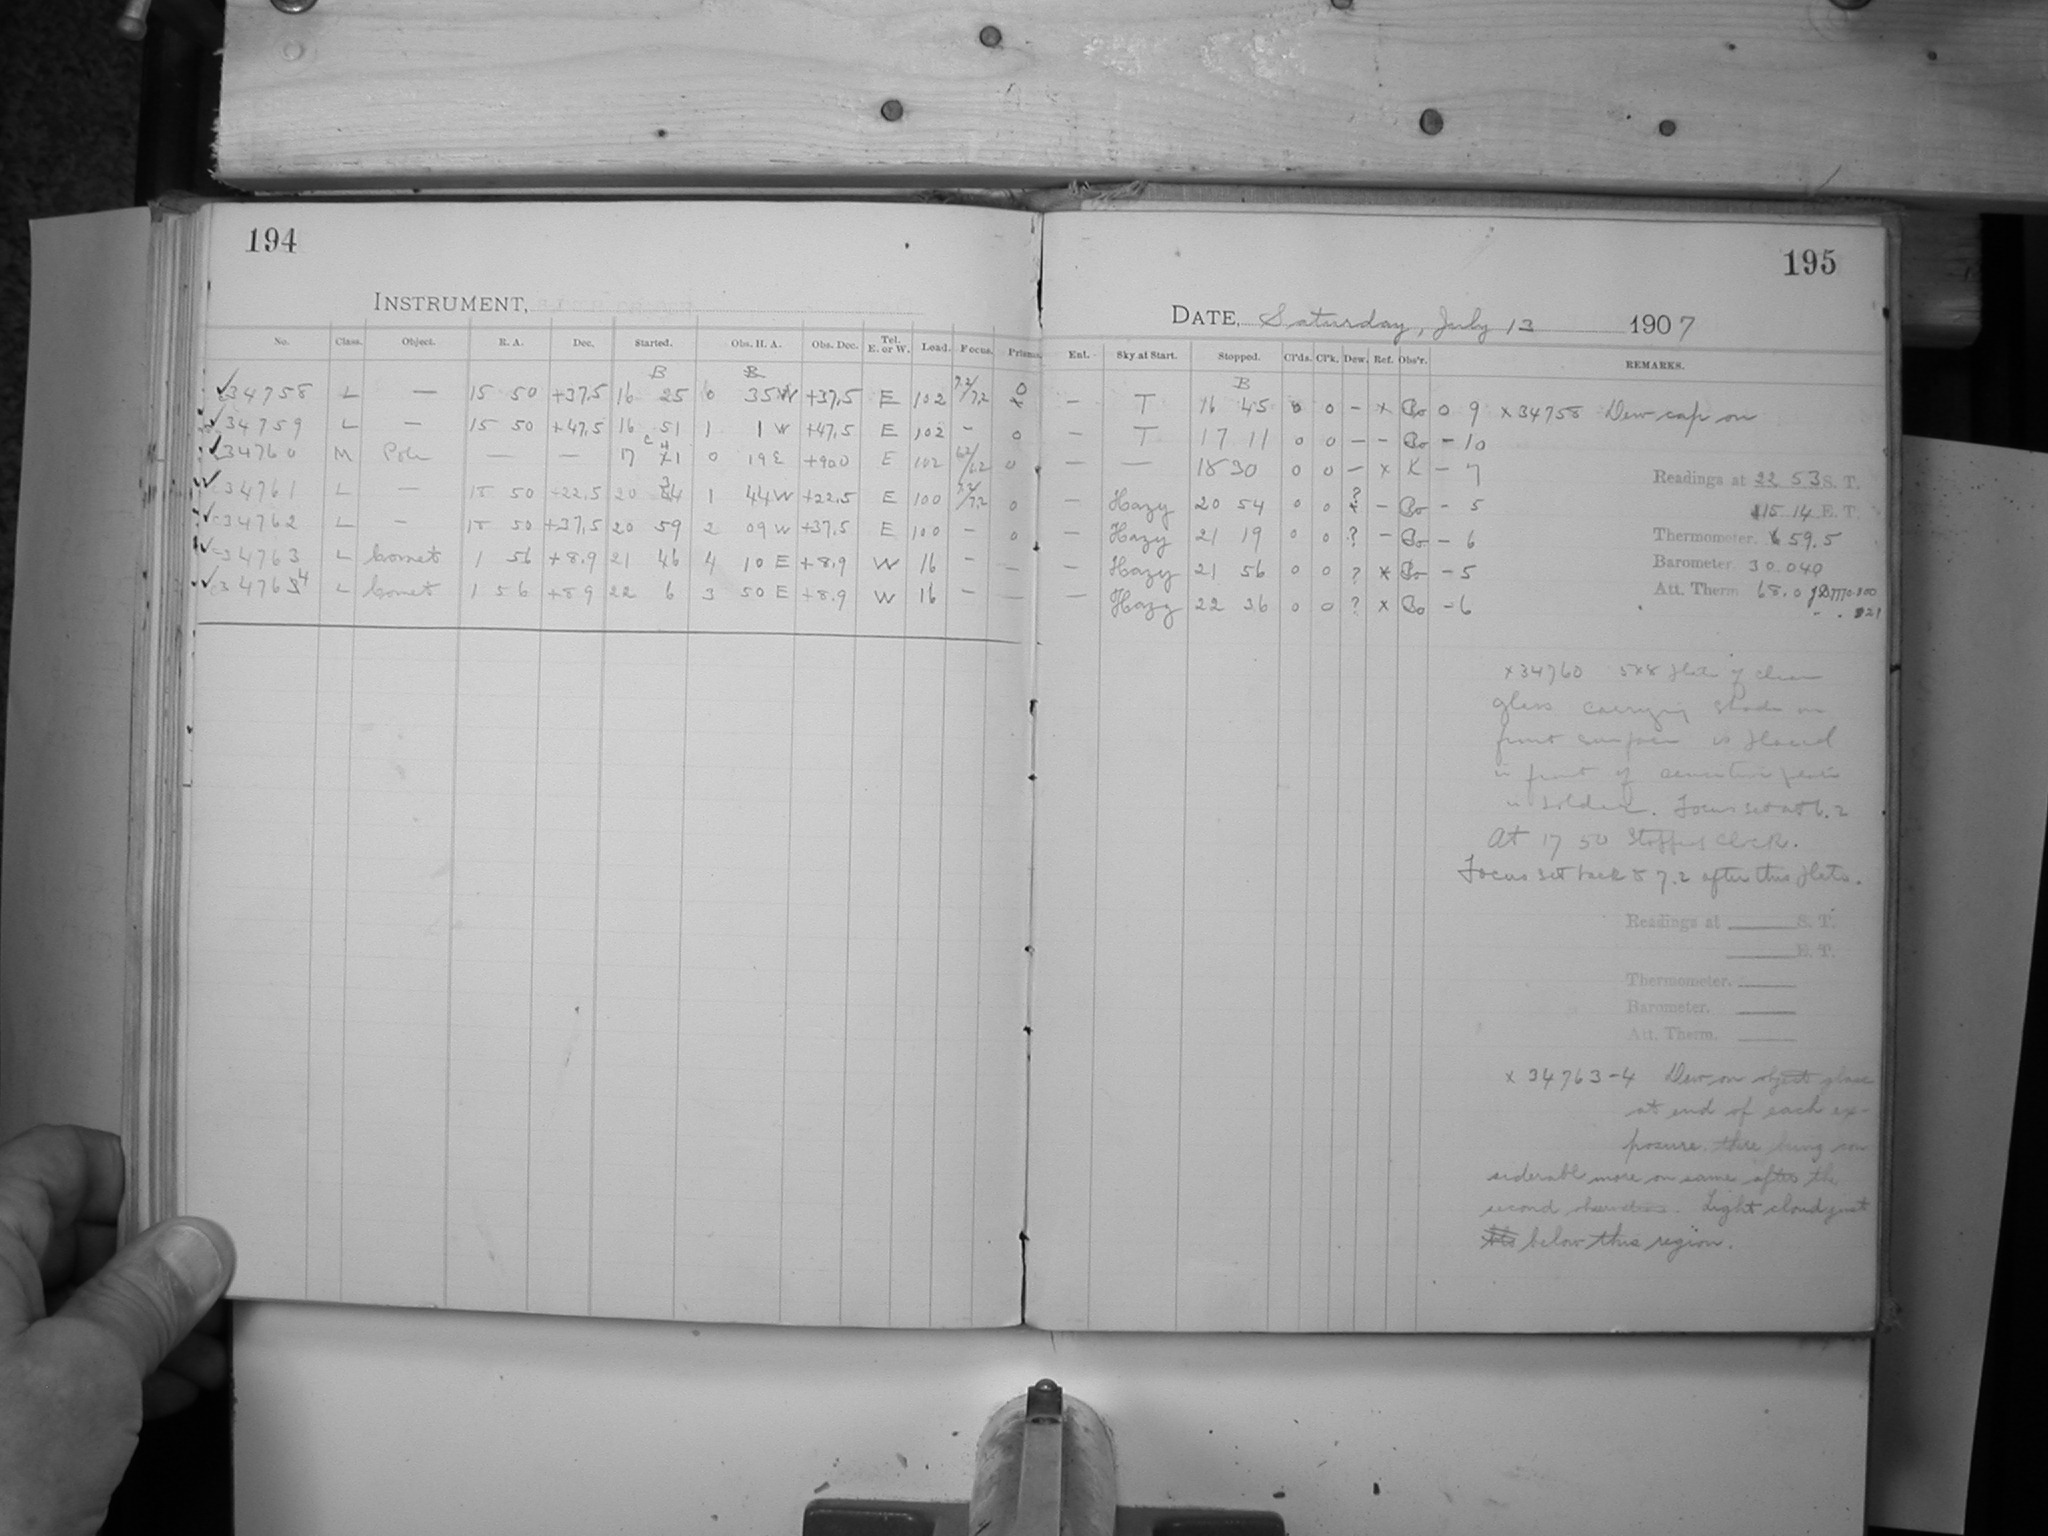 194
INSTRUMENT,
No. Class. Object. R. A. Dec. Started. Obs. H. A. Obs. Dec. Tel. E. or W. Load. Focus. Prisms.
B B
34758 L — 15 50 +37.5 16 25 0 35 W +37.5 E 102 7.2/7.2 0
34759 L — 15 50 +47.5 16 51 1 1 W +47.5 E 102 – 0
34760 M Pole — — 17 0 19 E +90.0 E 102 6.2/6.2 0
34761 L — 18 50 +22.5 20 34 1 44 W +22.5 E 100 7.2/7.2 0
34762 L — 18 50 +37.5 20 59 2 09 W +37.5 E 100 – 0
34763 L Comet 1 56 +8.9 21 46 4 10 E +8.9 W 16 – —
34764 L Comet 1 56 +8.9 22 6 3 50 E +8.9 W 16 – —
195
DATE, Saturday, July 13 1907
Ent. Sky at Start. Stopped. Cl'ds. Cl'k. Dew. Ref. Obs'r. REMARKS.
B
— T 16 45 0 0 – x Bo 0 9 x 34758 Dew cap on
— T 17 11 0 0 — – Bo – 10
— — 18 30 0 0 — x K – 7
— Hazy 20 54 0 0 ? – Bo – 5
— Hazy 21 19 0 0 ? – Bo – 6
— Hazy 21 56 0 0 ? x Bo – 5
— Hazy 22 26 0 0 ? x Bo – 6
Readings at 22 53 S. T.
15 14 E. T.
Thermometer. 59.5
Barometer. 30.040
Att. Therm. 68.0
x 34760 5x8 plate of clean
glass carrying shade on
front surface is placed
in front of sensitive plate
in holder. Focus set at 6.2
At 17 50 stopped clock.
Focus set back to 7.2 after this plate.
Readings at S. T.
E. T.
Thermometer.
Barometer.
Att. Therm.
x 34763-4 Dew on object glass
at end of each ex-
posure there being con
siderabl more on same after the
second . Light cloud just
below this region.